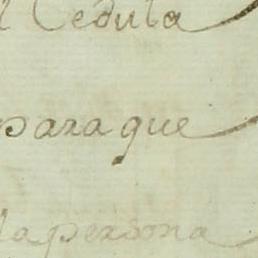 l Cedula
para que
la persona